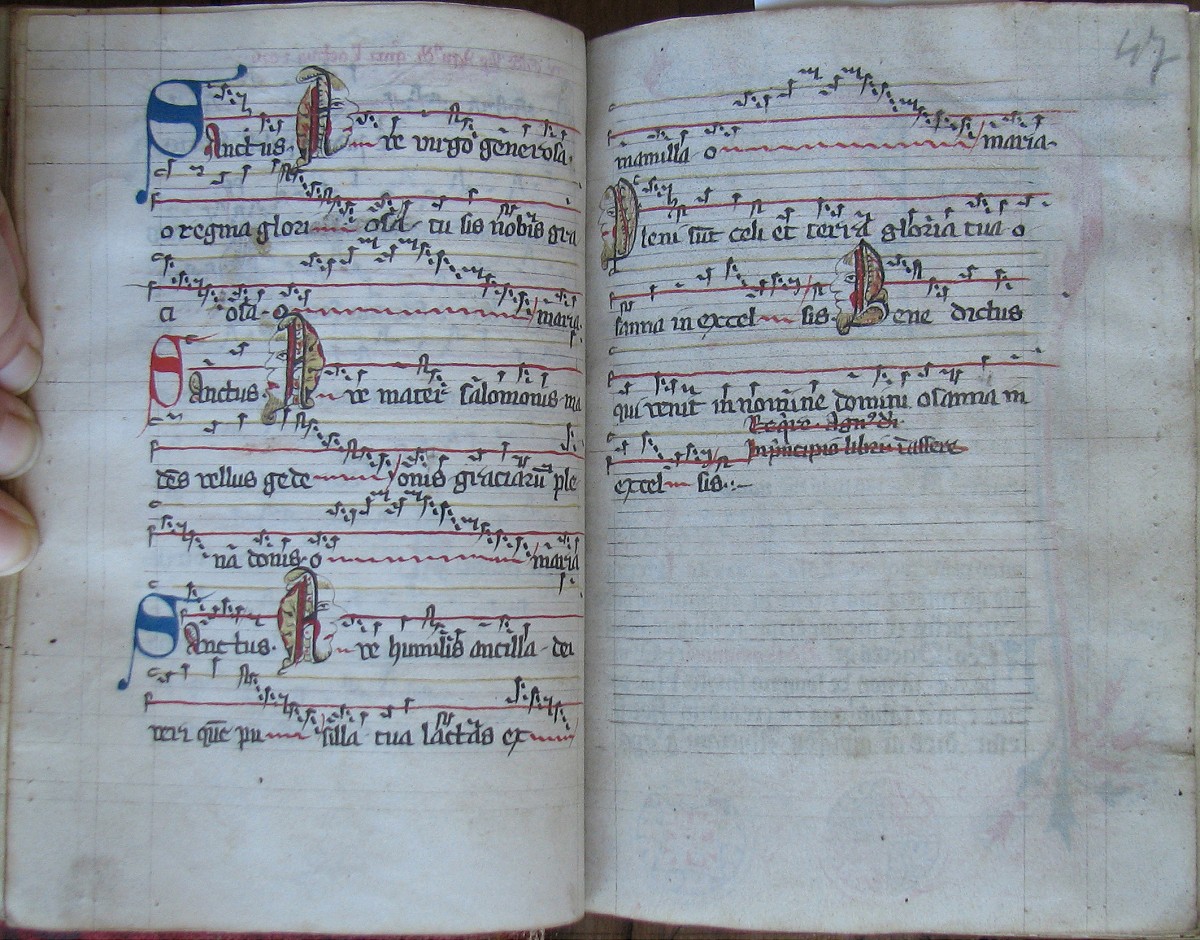 Sanctus. Aue virgo generosa.
o regina glori osa tu sis nobis gra
ci osa o maria.
Sanctus. Aue mater salomonis ma
dens vellus gede onis graciarū ple
na donis o maria
Sanctus. Aue humilis ancilla dei
veri que pu silla tua lactas ex
47
mamilla o maria.
Pleni sūt celi et terra gloria tua o
sanna in excel sis. Bene dictus
qui venit in nomine domini osanna in
Agn9 di
In principio libri
excel sis.